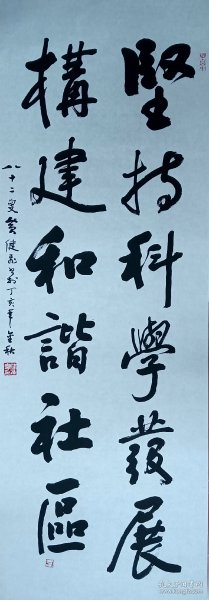 堅持科學發展
構建和諧社區
八十二叟 健 丁亥年金秋